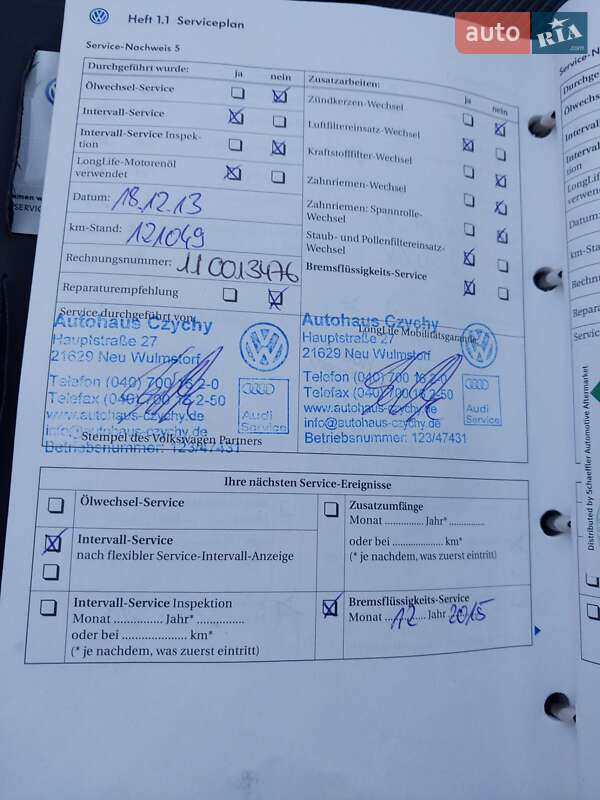 Heft 1.1 Serviceplan
auto RIA .com
Service-Nachweis 5
Durchgeführt wurde: ja nein
Ölwechsel-Service
Intervall-Service
Intervall-Service Inspek-
tion
LongLife-Motorenöl
verwendet
Datum: 18.12.13
km-Stand: 121049
Rechnungsnummer: 110013476
Reparaturempfehlung
Zusatzarbeiten: ja nein
Zündkerzen-Wechsel
Luftfiltereinsatz-Wechsel
Kraftstofffilter-Wechsel
Zahnriemen-Wechsel
Zahnriemen: Spannrolle-
Wechsel
Staub- und Pollenfiltereinsatz-
Wechsel
Bremsflüssigkeits-Service
Service durchgeführt von:
Autohaus Czychy
Hauptstraße 27
21629 Neu Wulmstorf
Telefon (040) 700 16 2-0
Telefax (040) 700 16 2-50
www.autohaus-czychy.de
info@autohaus-czychy.de
Betriebsnummer: 123/47431
Audi
Service
Stempel des Volkswagen Partners
LongLife Mobilitätsgarantie
Autohaus Czychy
Hauptstraße 27
21629 Neu Wulmstorf
Telefon (040) 700 16 2-0
Telefax (040) 700 16 2-50
www.autohaus-czychy.de
info@autohaus-czychy.de
Betriebsnummer: 123/47431
Audi
Service
Ihre nächsten Service-Ereignisse
Ölwechsel-Service
Intervall-Service
nach flexibler Service-Intervall-Anzeige
Intervall-Service Inspektion
Monat .............. Jahr* ..............
oder bei ................... km*
(* je nachdem, was zuerst eintritt)
Zusatzumfänge
Monat .............. Jahr* ..............
oder bei ................... km*
(* je nachdem, was zuerst eintritt)
Bremsflüssigkeits-Service
Monat 12 Jahr 2015
Distributed by Schaeffler Automotive Aftermarket